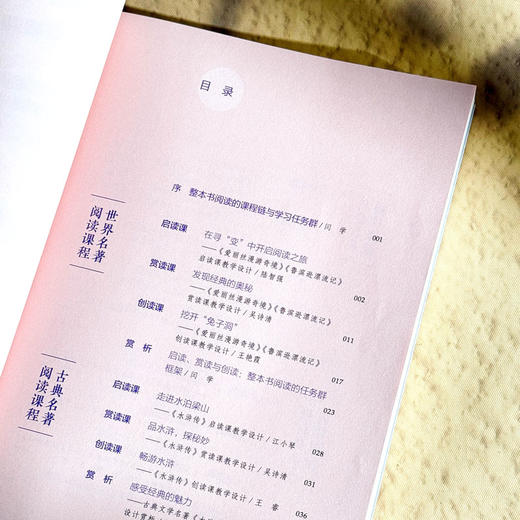 目 录
序 整本书阅读的课程链与学习任务群/闫 学
001
世界名著
阅读课程
启读课 在寻“变”中开启阅读之旅
——《爱丽丝漫游奇境》《鲁滨逊漂流记》
启读课教学设计/陆智强
002
赏读课 发现经典的奥秘
——《爱丽丝漫游奇境》《鲁滨逊漂流记》
赏读课教学设计/吴诗清
011
创读课 挖开“兔子洞”
——《爱丽丝漫游奇境》《鲁滨逊漂流记》
创读课教学设计/王艳霞
017
赏 析 启读、赏读与创读:整本书阅读的任务群
框架/闫 学
023
古典名著
阅读课程
启读课 走进水泊梁山
——《水浒传》启读课教学设计/江小琴
028
赏读课 品水浒,探秘妙
——《水浒传》赏读课教学设计/吴诗清
031
创读课 畅游水浒
——《水浒传》创读课教学设计/王 睿
036
赏 析 感受经典的魅力
——古典文学名著《水
设计赏析